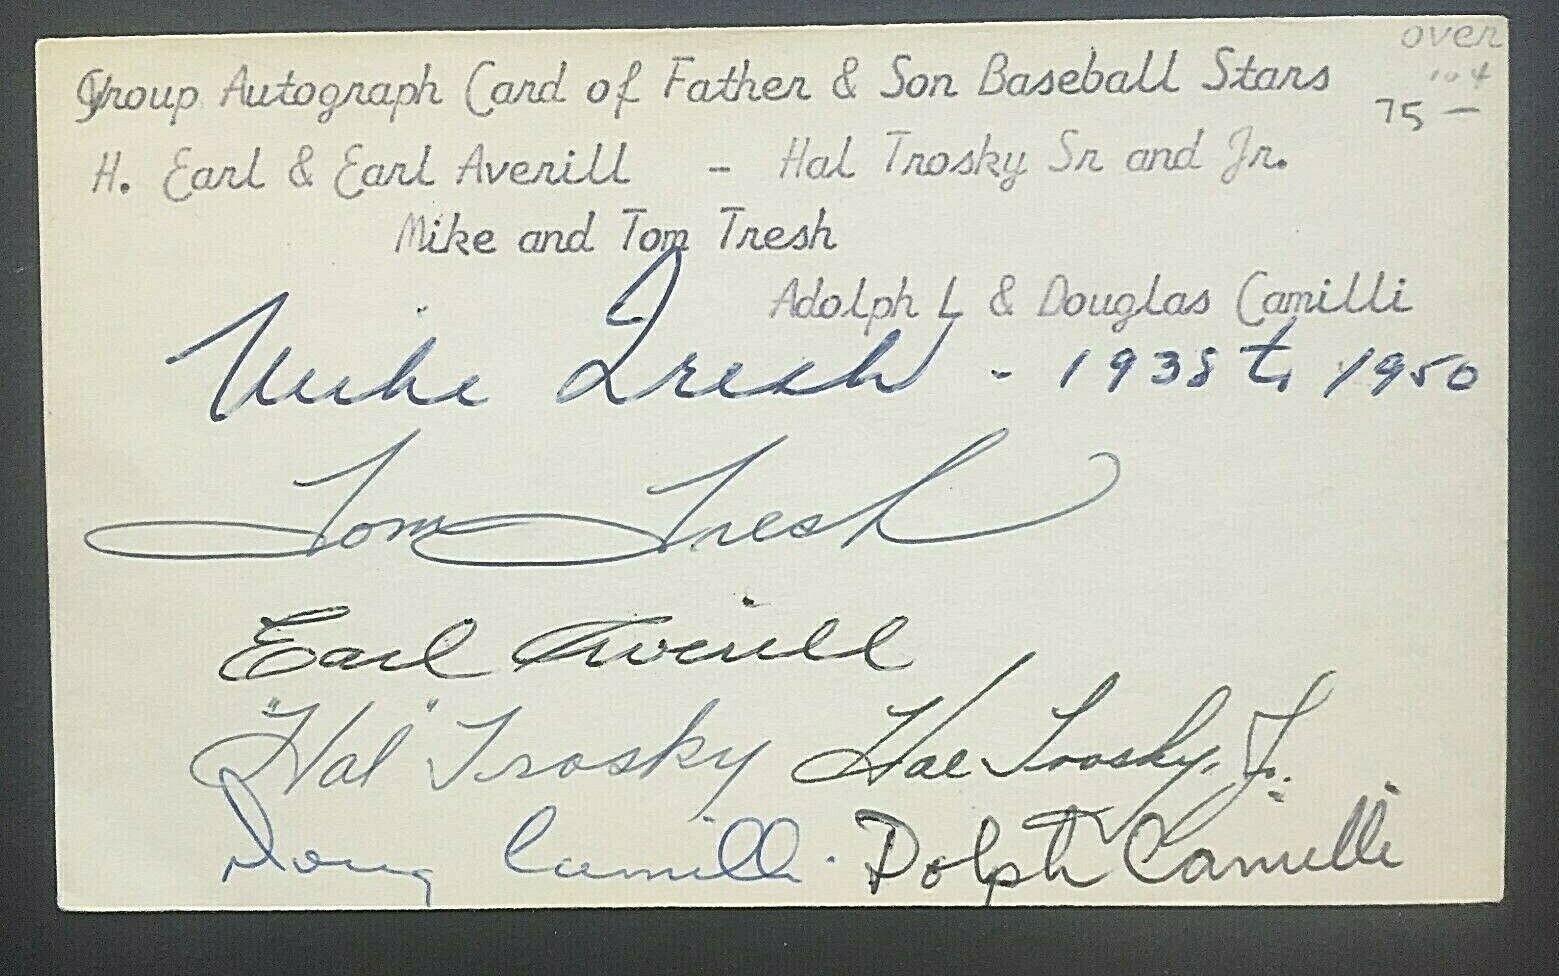 over
Group Autograph Card of Father & Son Baseball Stars
75 —
H. Earl & Earl Averill - Hal Trosky Sr and Jr.
Mike and Tom Tresh
Adolph L & Douglas Camilli
Mike Tresh - 1938 to 1950
Tom Tresh
Earl Averill
"Hal" Trosky Hal Trosky, Jr.
Doug Camilli. Dolph Camilli